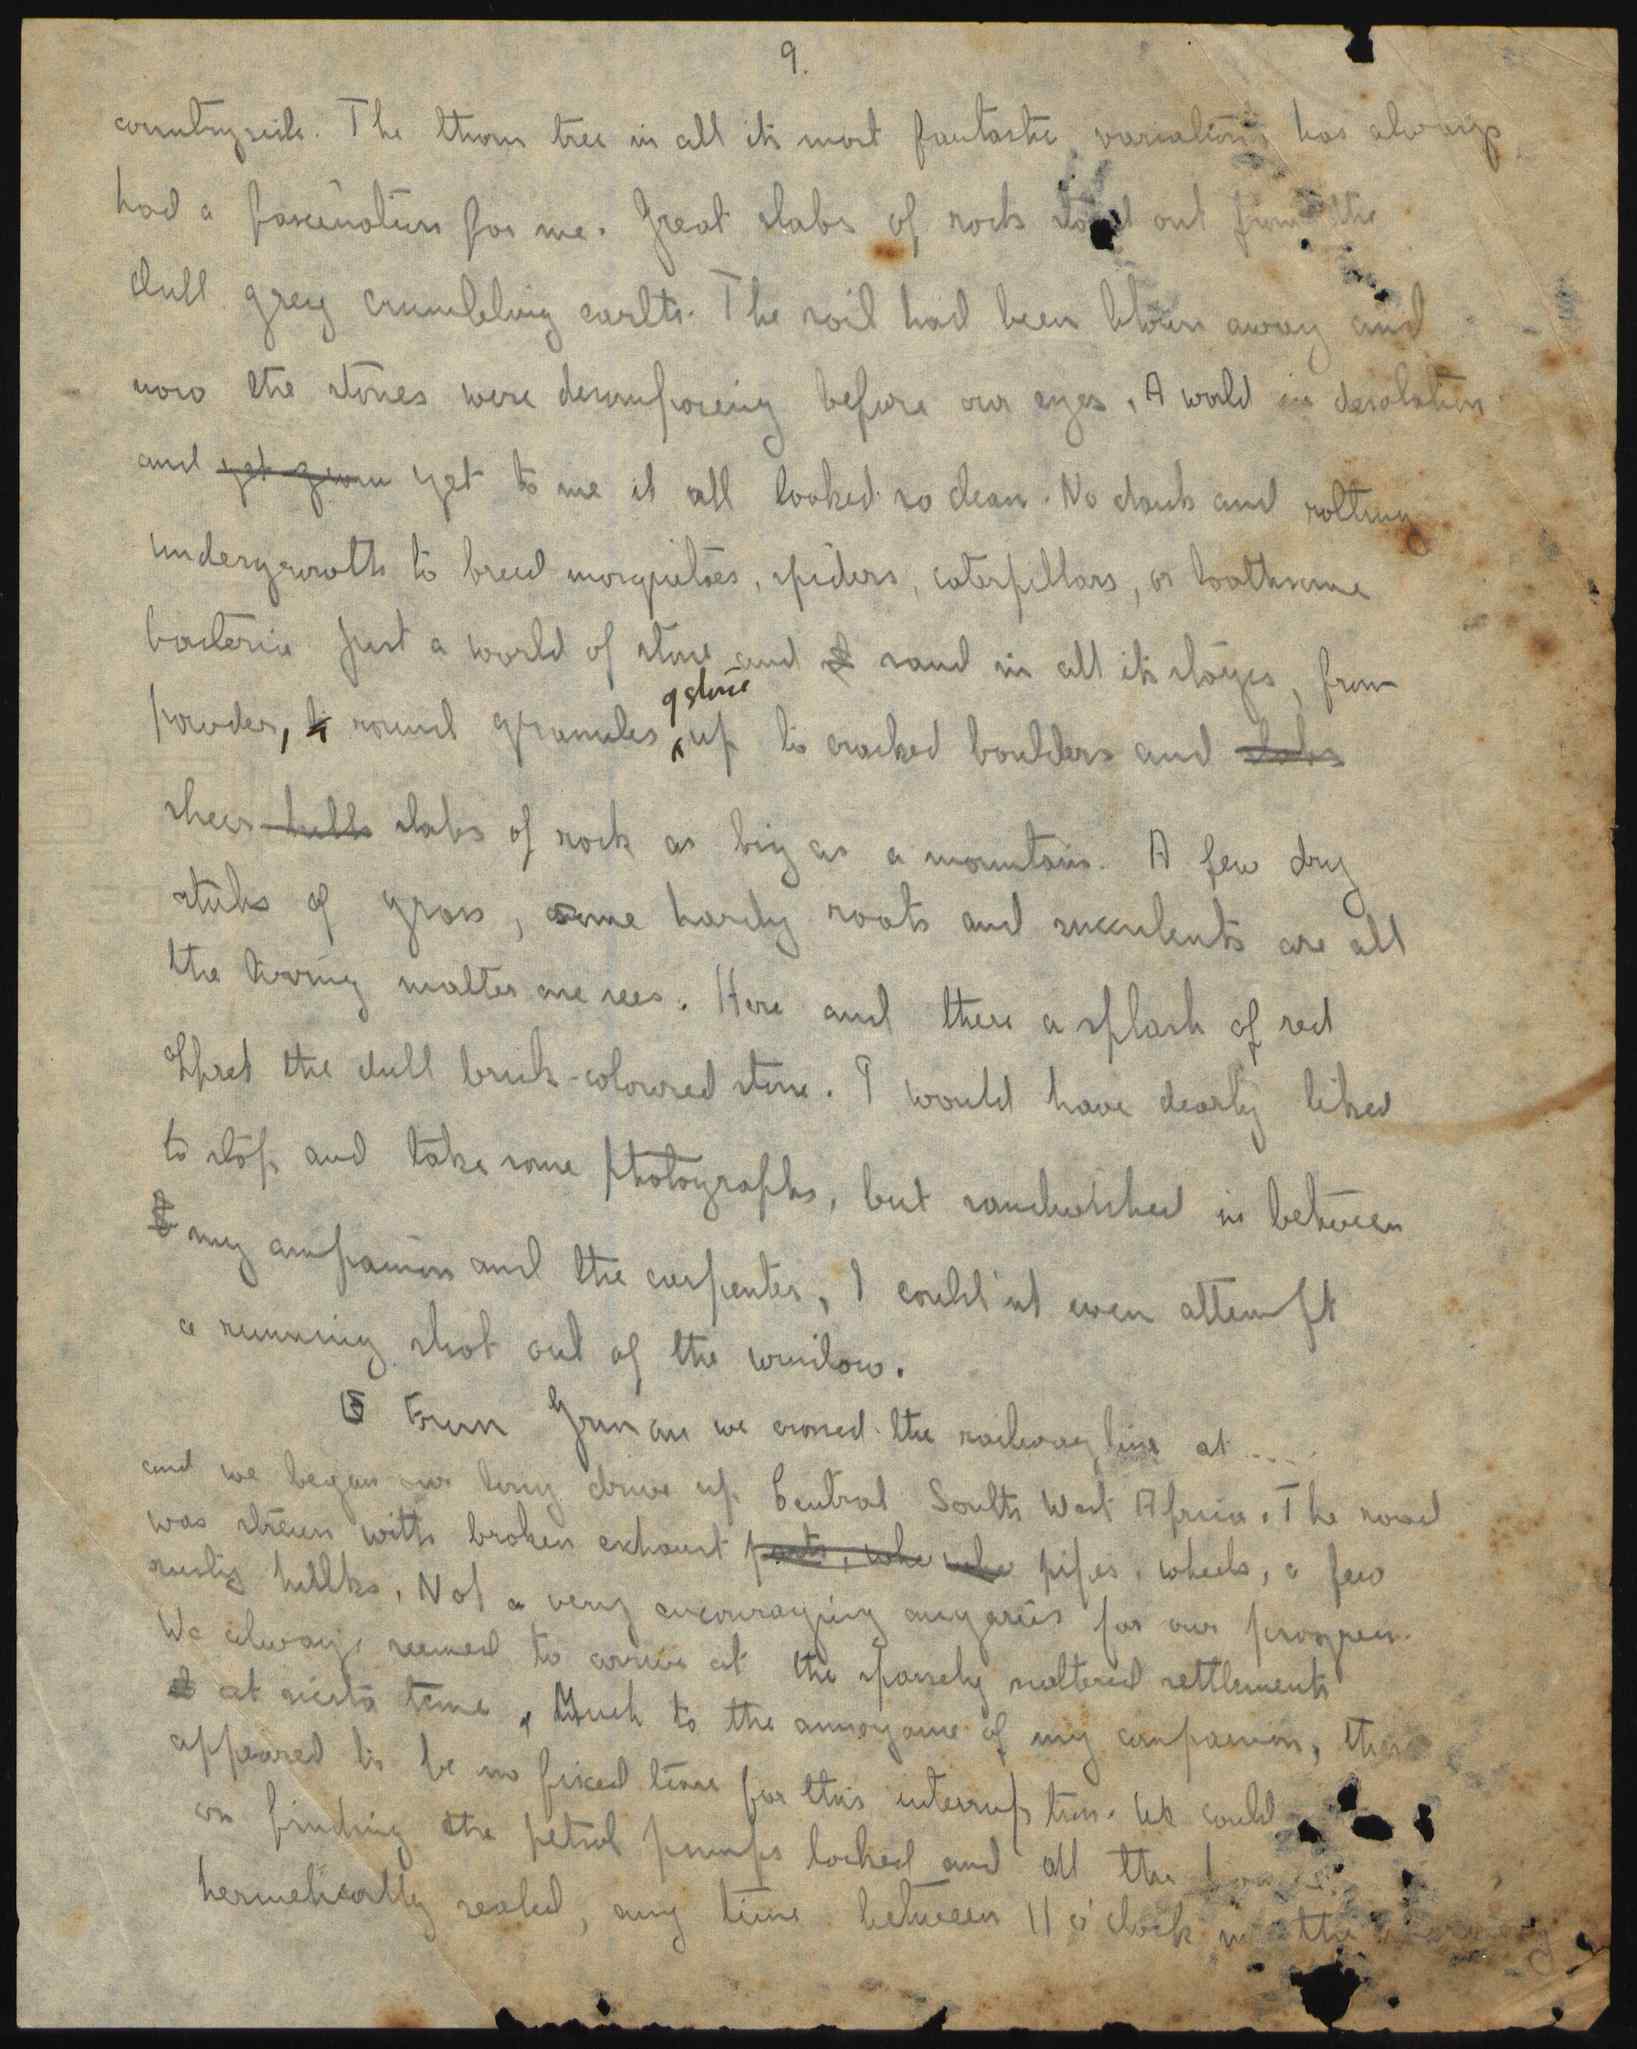 9.
countryside. The thorn tree in all its most fantastic variations has always
had a fascination for me. Great slabs of rock stood out from the
dull grey crumbling earth. The soil had been blown away and
now the stones were decomposing before our eyes. A world in desolation
and yet yet to me it all looked so clean. No dank and rotting
undergrowth to breed mosquitoes, spiders, caterpillars, or loathsome
bacteria just a world of stone and sand in all its stages, from
powder, to round granules of stone up to cracked boulders and slabs
sheer hills slabs of rock as big as a mountain. A few dry
sticks of grass, some hardy roots and succulents are all
the living matter one sees. Here and there a splash of red
the dull brick-coloured stone. I would have dearly liked
to stop and take some photographs, but sandwiched in between
my companion and the carpenter, I could'nt even attempt
a running shot out of the window.
From Grunau we crossed the railway line at .....
and we began our long drive up Central South West Africa. The road
was strewn with broken exhaust parts, whe whe pipes, wheels, a few
rusty hulks. Not a very encouraging auguries for our progress.
We always seemed to arrive at the sparsely scattered settlements
at siesta time, Much to the annoyance of my companion, there
appeared to be no fixed time for this interruption. We could
on finding the petrol pumps locked and all the
hermetically sealed, any time between 11 o'clock in the morning